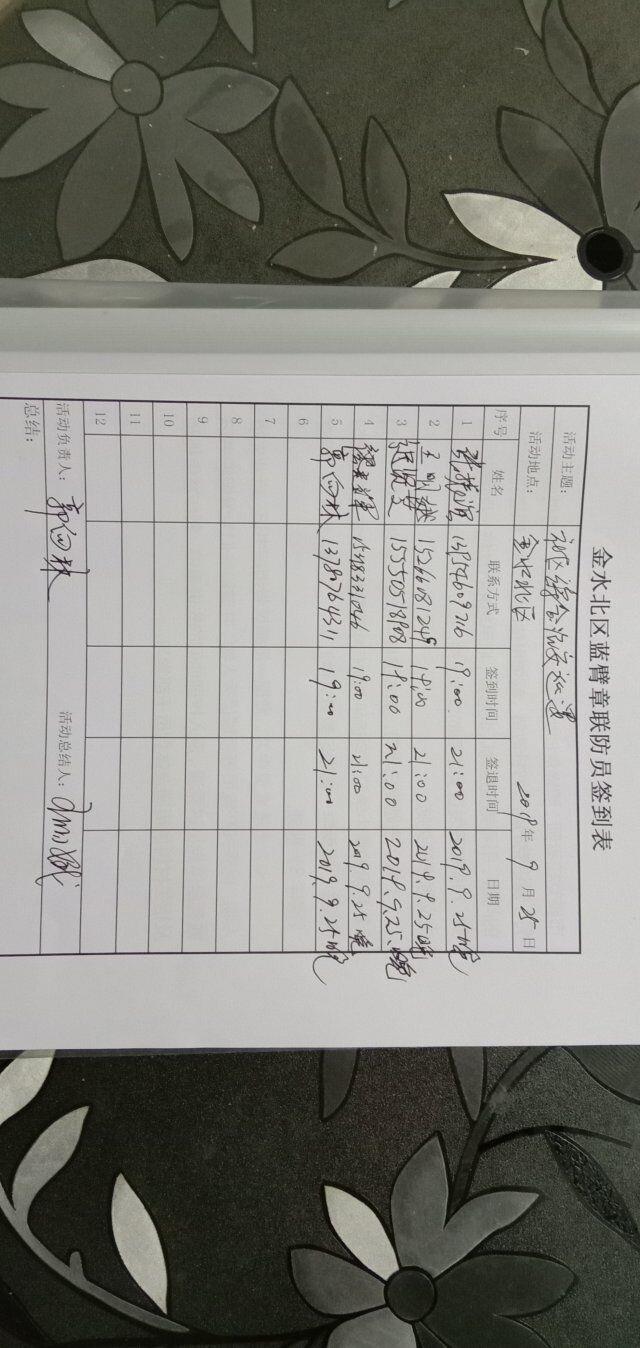 金水北区蓝臂章联防员签到表
活动主题： 社区综合治安巡逻
活动地点： 金水北区 2019年 9月 25日
序号 姓名 联系方式 签到时间 签退时间 日期
1 19:00 21:00 2019.9.25晚
2 15266081249 19:00 21:00 2019.9.25晚
3 15550518898 19:00 21:00 2019.9.25晚
4 19:00 21:00 2019.9.25晚
5 郭向林 13780764311 19:00 21:00 2019.9.25晚
6
7
8
9
10
11
12
活动负责人： 郭向林 活动总结人：
总结：